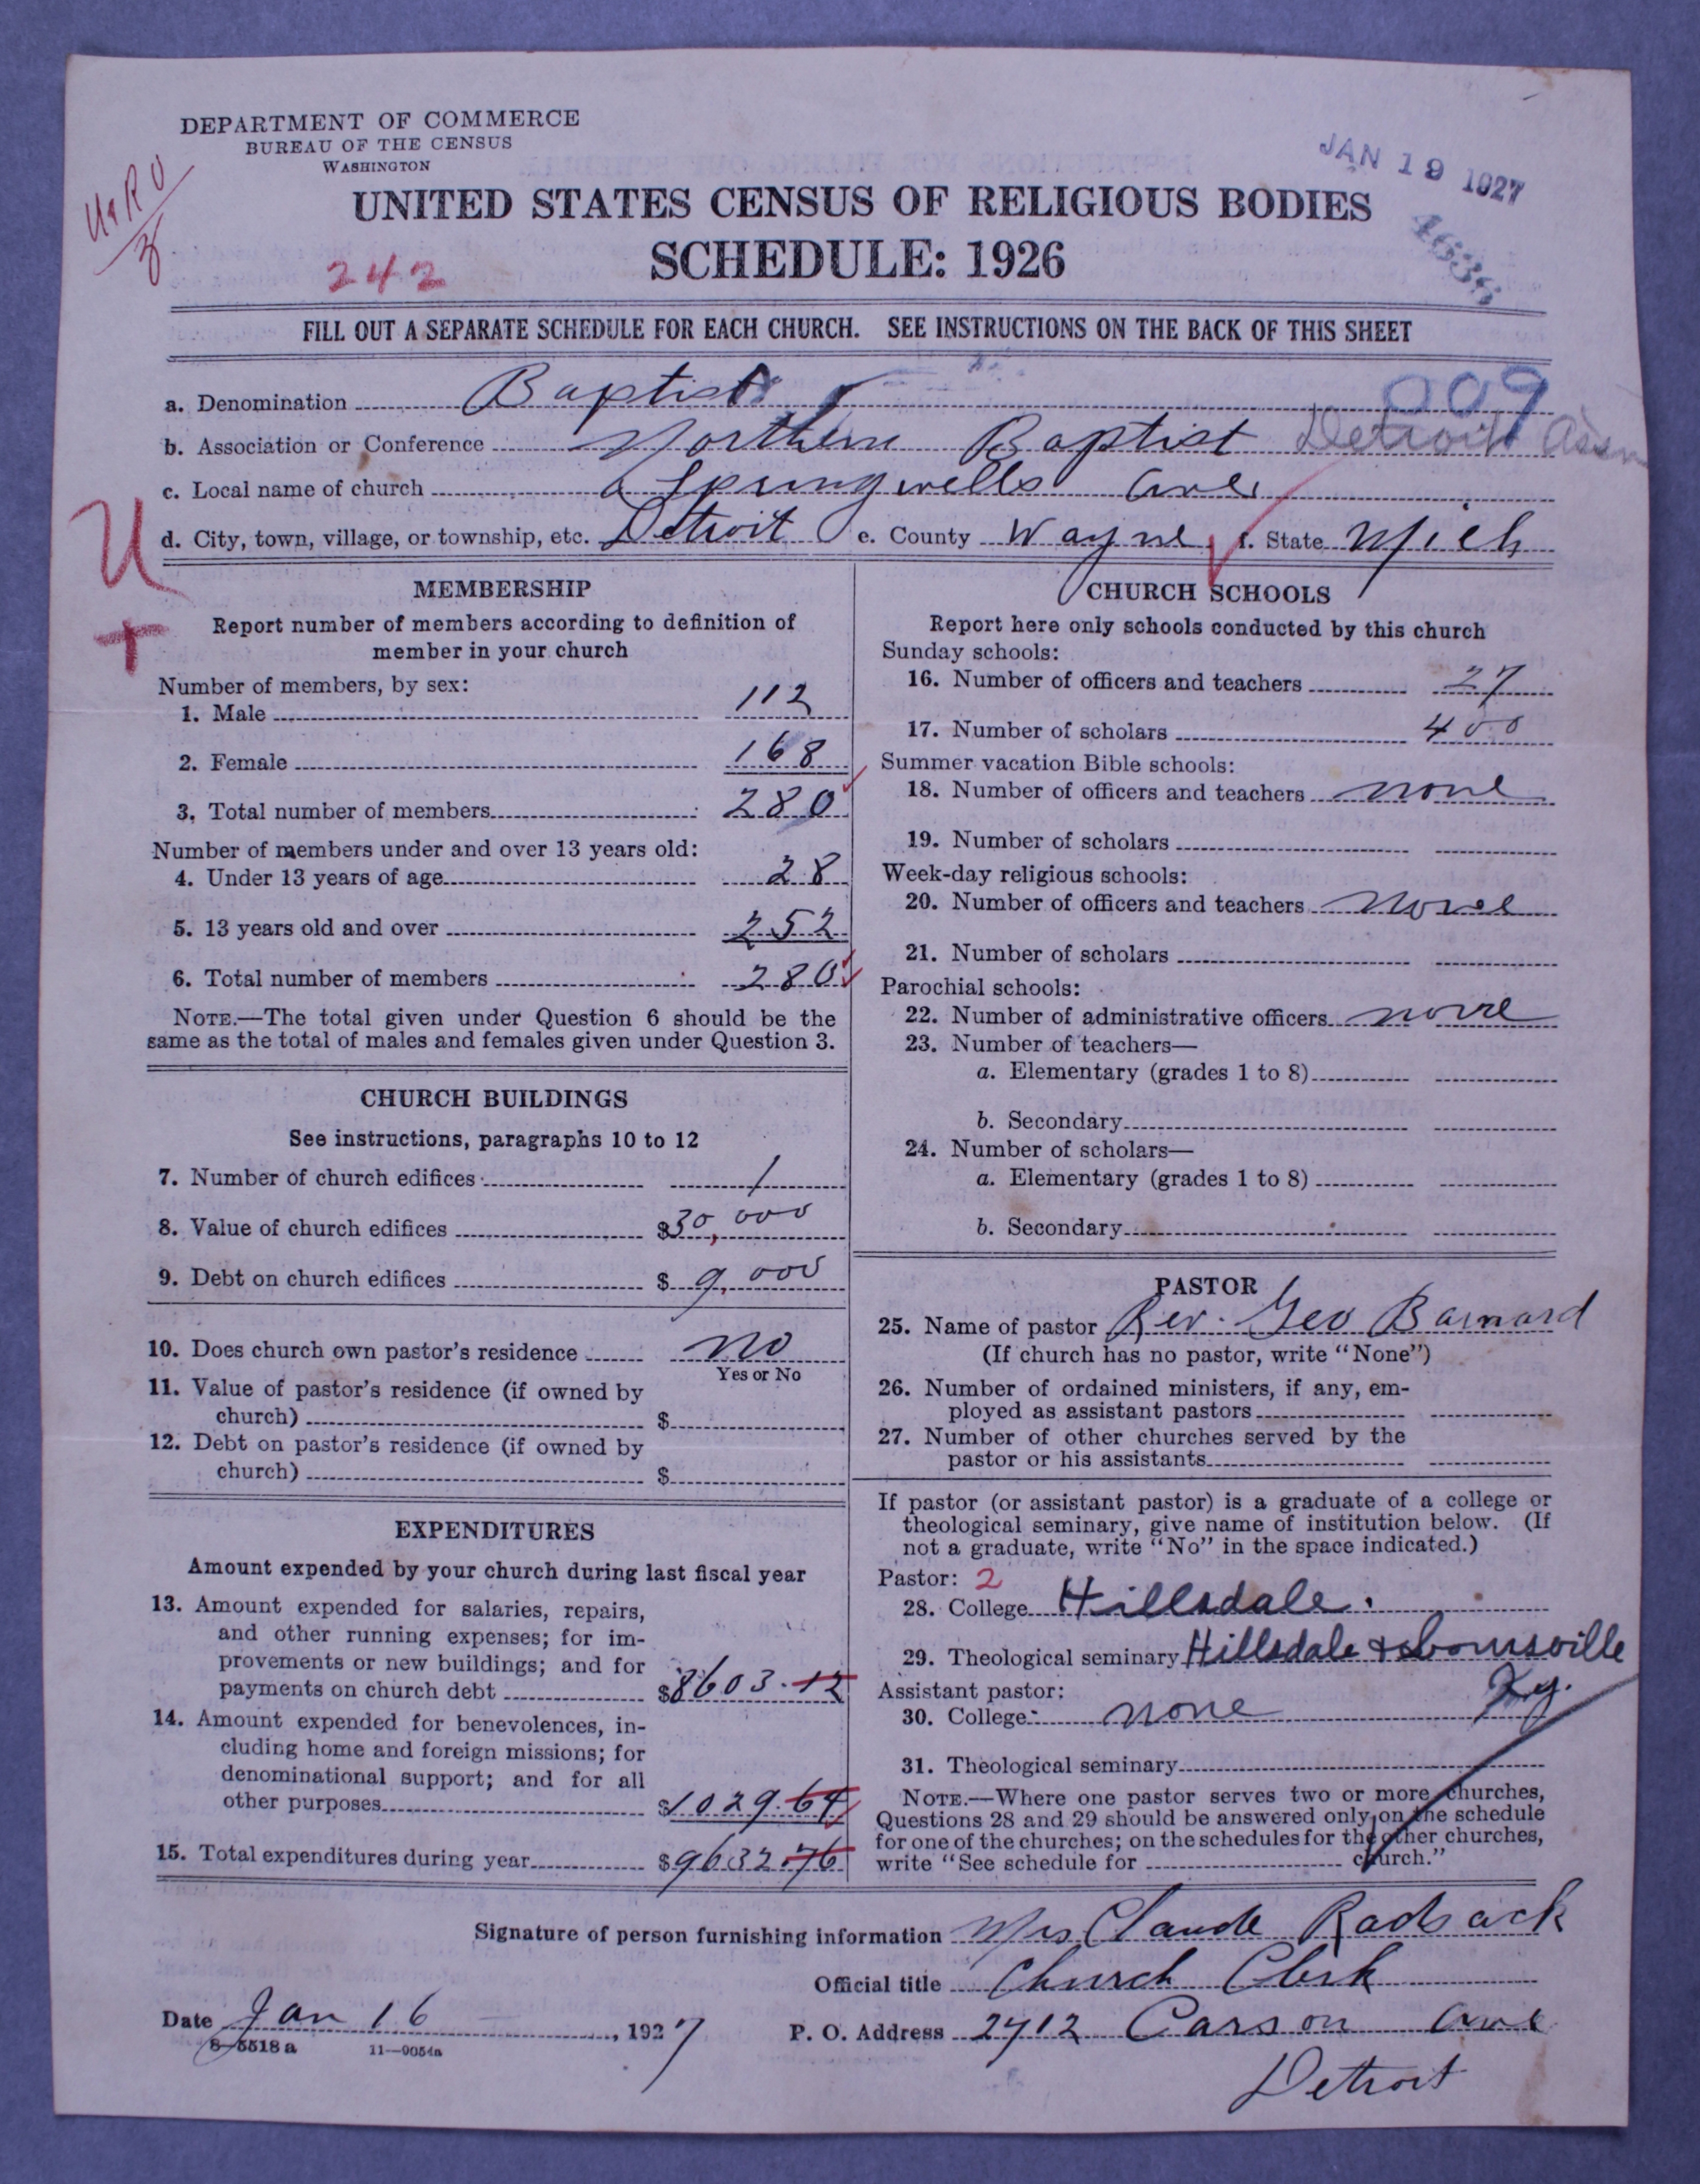 DEPARTMENT OF COMMERCE
BUREAU OF THE CENSUS
WASHINGTON
JAN 19 1927
UNITED STATES CENSUS OF RELIGIOUS BODIES
SCHEDULE: 1926
242
FILL OUT A SEPARATE SCHEDULE FOR EACH CHURCH. SEE INSTRUCTIONS ON THE BACK OF THIS SHEET
009
a. Denomination Baptist
b. Association or Conference Northern Baptist Detroit Assn
c. Local name of church Springwells Ave
d. City, town, village, or township, etc. Detroit e. County Wayne f. State Mich
U
+
MEMBERSHIP
Report number of members according to definition of
member in your church
Number of members, by sex:
1. Male 112
2. Female 168
3. Total number of members 280
Number of members under and over 13 years old:
4. Under 13 years of age 28
5. 13 years old and over 252
6. Total number of members 280
NOTE.—The total given under Question 6 should be the
same as the total of males and females given under Question 3.
CHURCH BUILDINGS
See instructions, paragraphs 10 to 12
7. Number of church edifices 1
8. Value of church edifices $30,000
9. Debt on church edifices $ 9,000
10. Does church own pastor's residence no
Yes or No
11. Value of pastor's residence (if owned by
church) $
12. Debt on pastor's residence (if owned by
church) $
EXPENDITURES
Amount expended by your church during last fiscal year
13. Amount expended for salaries, repairs,
and other running expenses; for im-
provements or new buildings; and for
payments on church debt $8603.12
14. Amount expended for benevolences, in-
cluding home and foreign missions; for
denominational support; and for all
other purposes $1029.64
15. Total expenditures during year $9632.76
CHURCH SCHOOLS
Report here only schools conducted by this church
Sunday schools:
16. Number of officers and teachers 27
17. Number of scholars 400
Summer vacation Bible schools:
18. Number of officers and teachers none
19. Number of scholars
Week-day religious schools:
20. Number of officers and teachers None
21. Number of scholars
Parochial schools:
22. Number of administrative officers none
23. Number of teachers—
a. Elementary (grades 1 to 8)
b. Secondary
24. Number of scholars—
a. Elementary (grades 1 to 8)
b. Secondary
PASTOR
25. Name of pastor Rev. Geo Barnard
(If church has no pastor, write "None")
26. Number of ordained ministers, if any, em-
ployed as assistant pastors
27. Number of other churches served by the
pastor or his assistants
If pastor (or assistant pastor) is a graduate of a college or
theological seminary, give name of institution below. (If
not a graduate, write "No" in the space indicated.)
Pastor: 2
28. College Hillsdale.
29. Theological seminary Hillsdale & Louisville
Ky.
Assistant pastor:
30. College none
31. Theological seminary
NOTE.—Where one pastor serves two or more churches,
Questions 28 and 29 should be answered only on the schedule
for one of the churches; on the schedules for the other churches,
write "See schedule for church."
Signature of person furnishing information Mrs Claude Radsack
Official title Church Clerk
Date Jan 16, 1927
P. O. Address 2712 Carson Ave
Detroit
8—5518 a 11—9054a